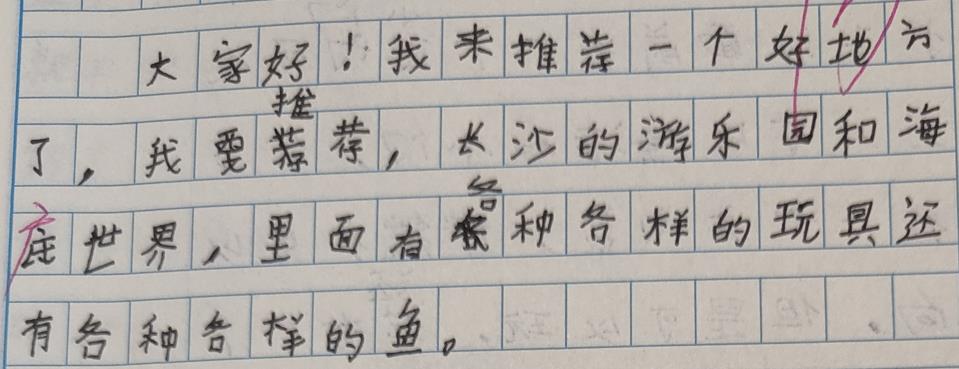 大家好！我来推荐一个好地方
了，我要推荐，长沙的游乐园和海
底世界，里面有各种各样的玩具还
有各种各样的鱼。